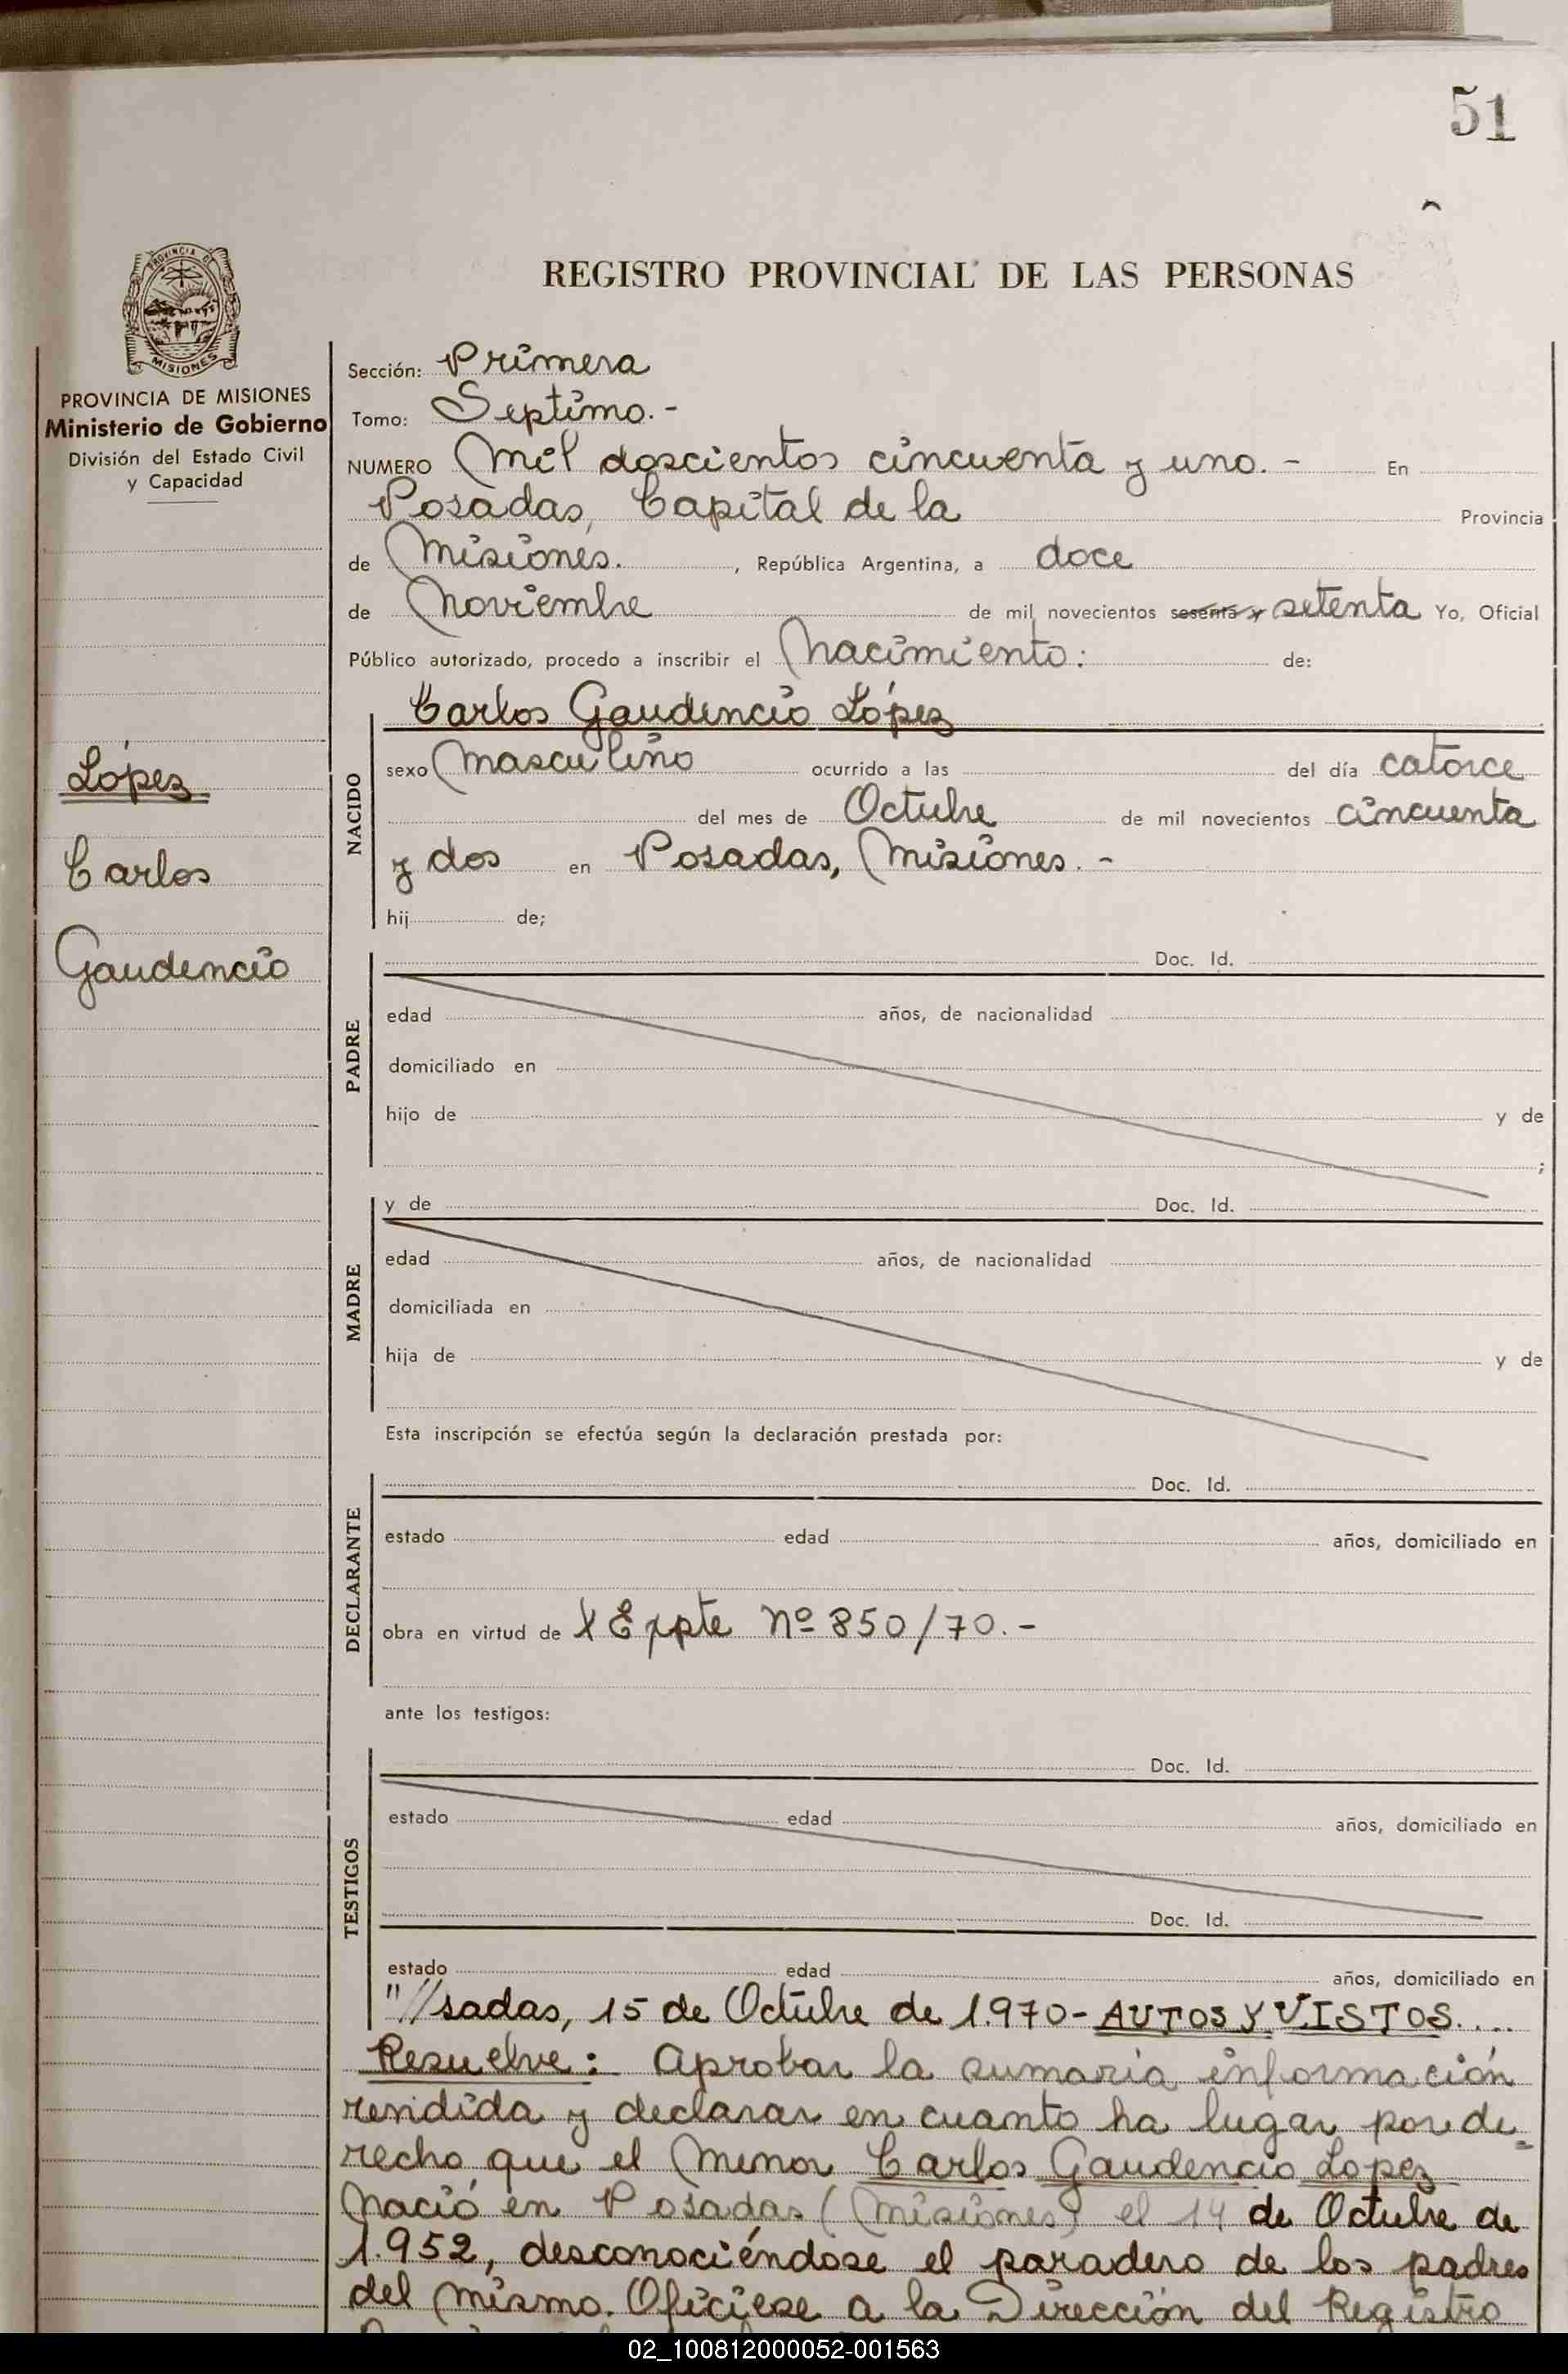 51
REGISTRO PROVINCIAL DE LAS PERSONAS
PROVINCIA DE MISIONES
PROVINCIA DE MISIONES
Ministerio de Gobierno
División del Estado Civil
y Capacidad
López
Carlos
Gaudencio
Sección: Primera
Tomo: Septimo.-
NUMERO Mil doscientos cincuenta y uno.- En
Posadas, Capital de la Provincia
de Misiones. , República Argentina, a doce
de Noviembre de mil novecientos sesenta y setenta Yo, Oficial
Público autorizado, procedo a inscribir el Nacimiento: de:
Carlos Gaudencio López
NACIDO
sexo Masculino ocurrido a las del día catorce
del mes de Octubre de mil novecientos cincuenta
y dos en Posadas, Misiones.-
hij de;
PADRE
Doc. Id.
edad años, de nacionalidad
domiciliado en
hijo de y de
;
MADRE
y de Doc. Id.
edad años, de nacionalidad
domiciliada en
hija de y de
Esta inscripción se efectúa según la declaración prestada por:
DECLARANTE
Doc. Id.
estado edad años, domiciliado en
obra en virtud de X Expte Nº 850/70.-
ante los testigos:
TESTIGOS
Doc. Id.
estado edad años, domiciliado en
Doc. Id.
estado edad años, domiciliado en
"//sadas, 15 de Octubre de 1.970- AUTOS Y VISTOS....
Resuelve: Aprobar la sumaria información
rendida y declarar en cuanto ha lugar por de=
recho que el Menor Carlos Gaudencio Lopez
Nació en Posadas (Misiones) el 14 de Octubre de
1.952, desconociéndose el paradero de los padres
del mismo. Ofíciese a la Dirección del Registro
02_100812000052-001563